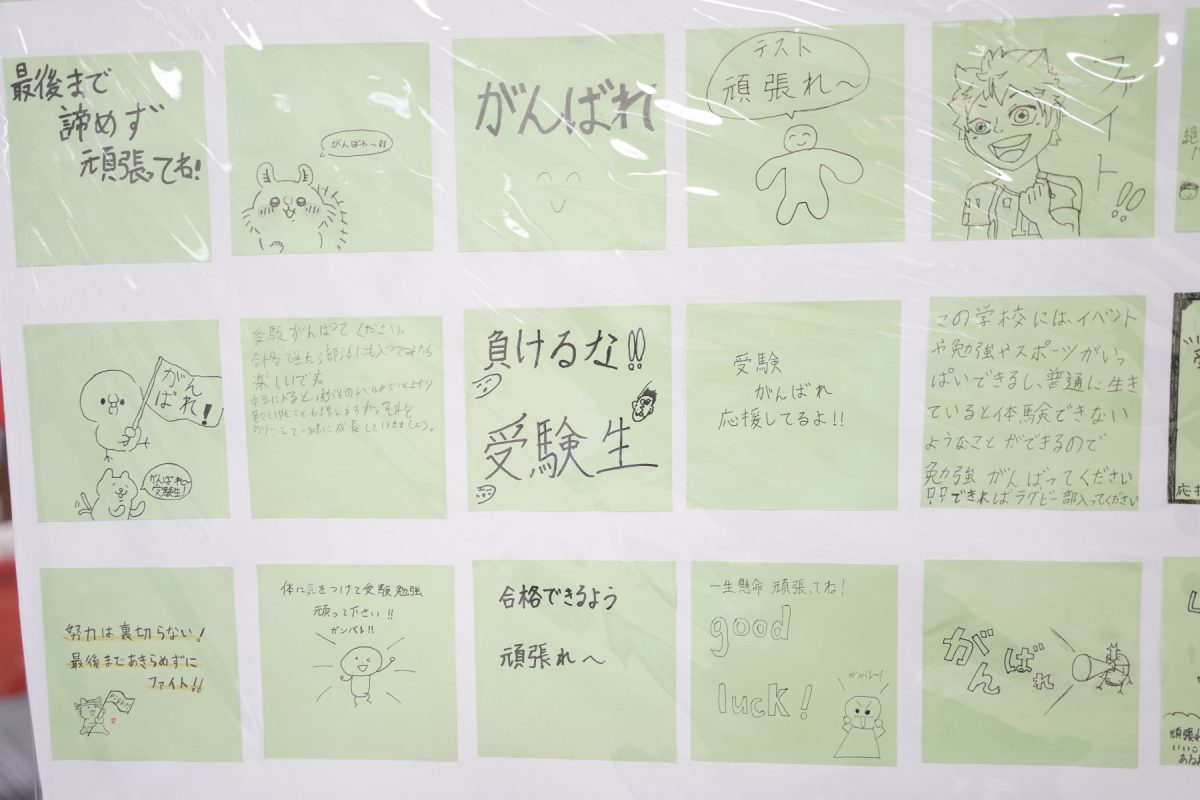 最後まで
諦めず
頑張ってね!
がんばれ〜!!
がんばれ
テスト
頑張れ〜
ファイト!!
がんばれ!
がんばれ〜
受験生!
受験がんばってください。
合格で
部活にも入ってみたら
楽しいです。
一緒に成長していきましょう。
負けるな!!
受験生
受験
がんばれ
応援してるよ!!
この学校には、イベント
や勉強やスポーツがいっ
ぱいできるし、普通に生き
ていると体験できない
ようなことができるので
勉強がんばってください
!!できればラグビー部入ってください
努力は裏切らない!
最後まであきらめずに
ファイト!!
体に気をつけて受験勉強
頑って下さい!!
ガンバレ!!
合格できるよう
頑張れ〜
一生懸命 頑張ってね!
good
luck!
ガンバレー!
がんばれ
頑張れ
いいこ
ある